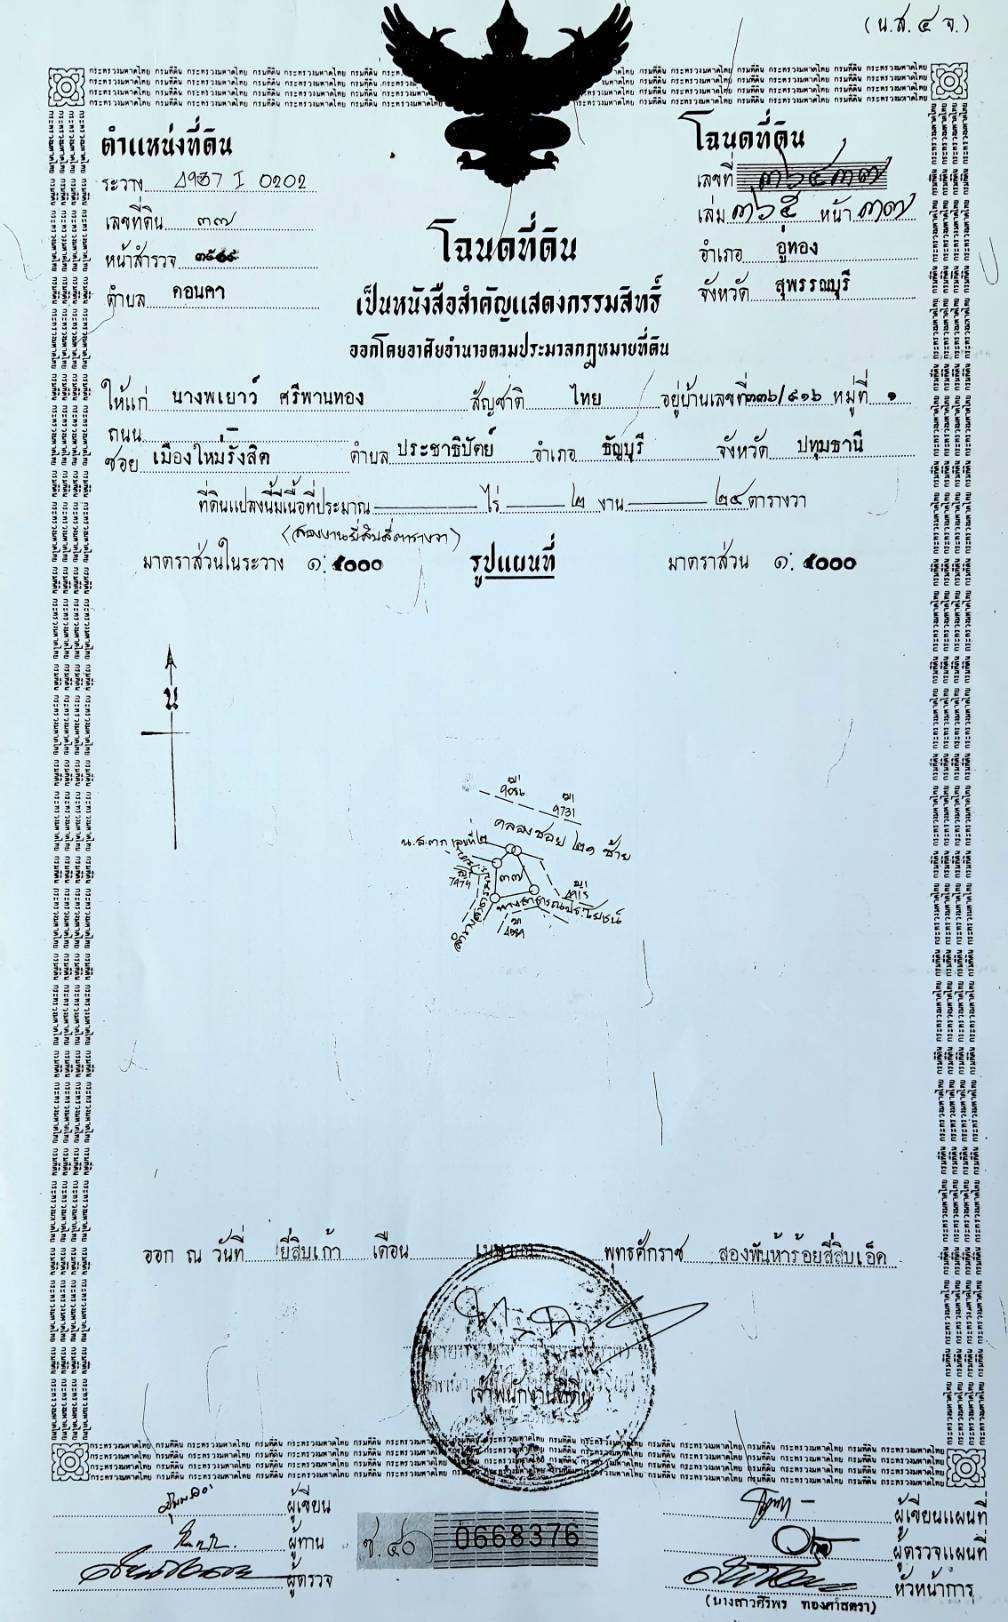 (น.ส. ๔ จ.)
ตำแหน่งที่ดิน
ระวาง 4937 I 0202
เลขที่ดิน ๓๗
หน้าสำรวจ
ตำบล ดอนคา
โฉนดที่ดิน
เลขที่ ๓๖๔๓๗
เล่ม ๓๖๕ หน้า ๓๗
อำเภอ อู่ทอง
จังหวัด สุพรรณบุรี
โฉนดที่ดิน
เป็นหนังสือสำคัญแสดงกรรมสิทธิ์
ออกโดยอาศัยอำนาจตามประมวลกฎหมายที่ดิน
ให้แก่ นางพเยาว์ ศรีพานทอง สัญชาติ ไทย อยู่บ้านเลขที่ ๓๓๖/๙๑๖ หมู่ที่ ๑
ถนน -
ซอย เมืองใหม่รังสิต ตำบล ประชาธิปัตย์ อำเภอ ธัญบุรี จังหวัด ปทุมธานี
ที่ดินแปลงนี้มีเนื้อที่ประมาณ - ไร่ ๒ งาน ๒๔ ตารางวา
(สองงานยี่สิบสี่ตารางวา)
มาตราส่วนในระวาง ๑: ๕๐๐๐ รูปแผนที่ มาตราส่วน ๑: ๕๐๐๐
น
9731
คลองซอย ๒๑ ซ้าย
น.ส.๓ก เลขที่ ๒
๓๗
7474
4915
ทางสาธารณประโยชน์
ลำรางสาธารณประโยชน์
ออก ณ วันที่ ยี่สิบเก้า เดือน เมษายน พุทธศักราช สองพันห้าร้อยสี่สิบเอ็ด
เจ้าพนักงานที่ดิน
ผู้เขียน
ผู้ทาน
ผู้ตรวจ
ช. ๔๐ 0668376
ผู้เขียนแผนที่
ผู้ตรวจแผนที่
หัวหน้าการ
(นางสาวศิริพร ทองศาสตรา)